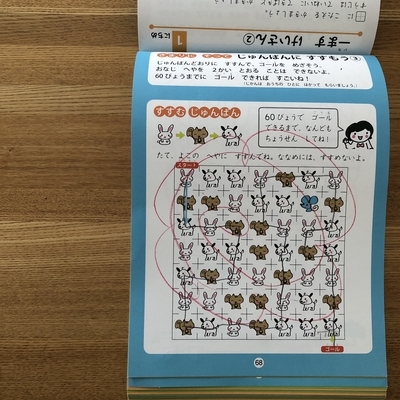 1 一ます けいさん②
にちめ
きまりに そって じゅんばんに すすもう③
じゅんばんどおりに すすんで、ゴールを めざそう。
おなじ へやを 2かい とおる ことは できないよ。
60びょうまでに ゴール できれば すごいね!
(じかんは おうちの ひとに はかって もらいましょう)
すすむ じゅんばん
60びょうで ゴール
できるまで、なんども
ちょうせん してね!
たて、よこの へやに すすんでね。ななめには、すすめないよ。
スタート
ゴール
68